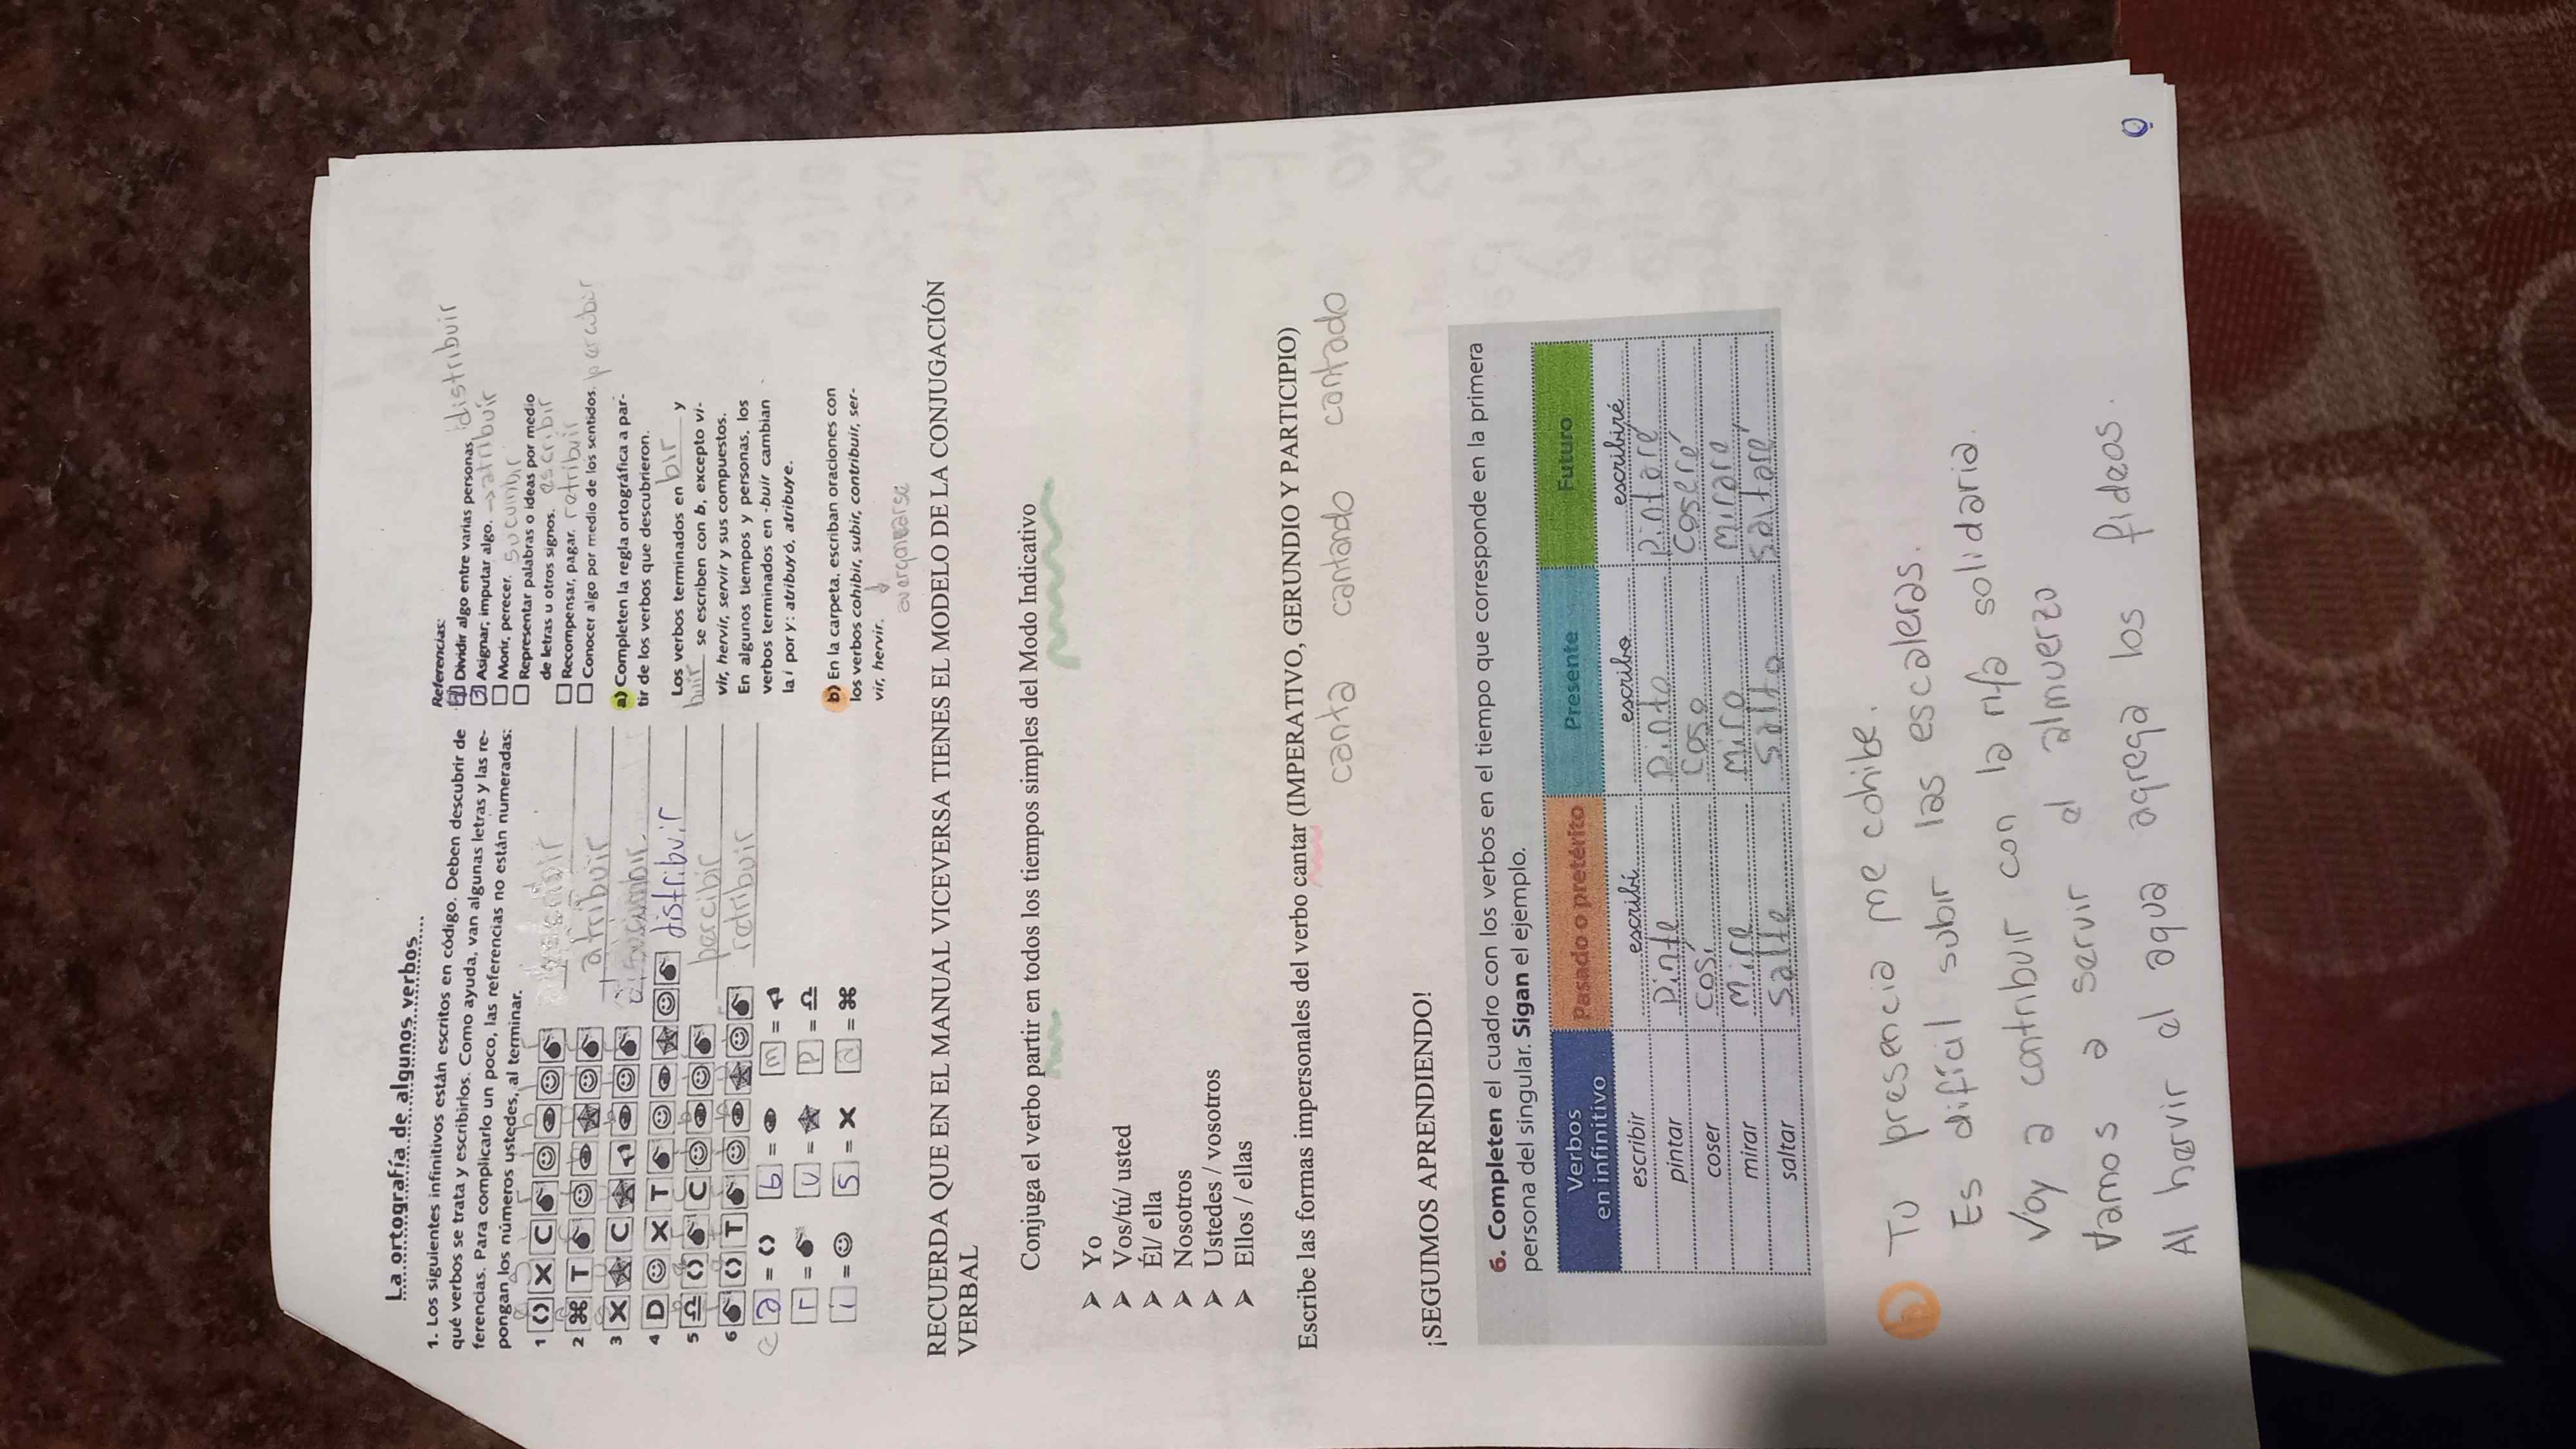 La ortografía de algunos verbos
1. Los siguientes infinitivos están escritos en código. Deben descubrir de
qué verbos se trata y escribirlos. Como ayuda, van algunas letras y las re-
ferencias. Para complicarlo un poco, las referencias no están numeradas:
pongan los números ustedes, al terminar.
1 X C
2 T atribuir
3 X C
4 D X T distribuir
5 C percibir
6 T retribuir
a = b = m =
r = u = p =
i = s = X a =
Referencias:
4 Dividir algo entre varias personas. distribuir
Asignar, imputar algo. → atribuir
Morir, perecer. sucumbir
Representar palabras o ideas por medio
de letras u otros signos. escribir
Recompensar, pagar. retribuir
Conocer algo por medio de los sentidos. percibir
a) Completen la regla ortográfica a par-
tir de los verbos que descubrieron.
Los verbos terminados en bir y
buir se escriben con b, excepto vi-
vir, hervir, servir y sus compuestos.
En algunos tiempos y personas, los
verbos terminados en -buir cambian
la i por y: atribuyó, atribuye.
b) En la carpeta, escriban oraciones con
los verbos cohibir, subir, contribuir, ser-
vir, hervir.
RECUERDA QUE EN EL MANUAL VICEVERSA TIENES EL MODELO DE LA CONJUGACIÓN
VERBAL
Conjuga el verbo partir en todos los tiempos simples del Modo Indicativo
➢ Yo
➢ Vos/tú/ usted
➢ Él/ ella
➢ Nosotros
➢ Ustedes / vosotros
➢ Ellos / ellas
Escribe las formas impersonales del verbo cantar (IMPERATIVO, GERUNDIO Y PARTICIPIO)
canta cantando cantado
¡SEGUIMOS APRENDIENDO!
6. Completen el cuadro con los verbos en el tiempo que corresponde en la primera
persona del singular. Sigan el ejemplo.
Verbos en infinitivo Pasado o pretérito Presente Futuro
escribir escribí escribo escribiré
pintar Pinte Pinto Pintaré
coser cosí Coso Coseré
mirar Mire Miro Mirare
saltar Salte Salto Saltaré
b) Tu presencia me cohibe.
Es difícil subir las escaleras.
Voy a contribuir con la rifa solidaria.
Vamos a servir el almuerzo
Al hervir el agua agrega los fideos.